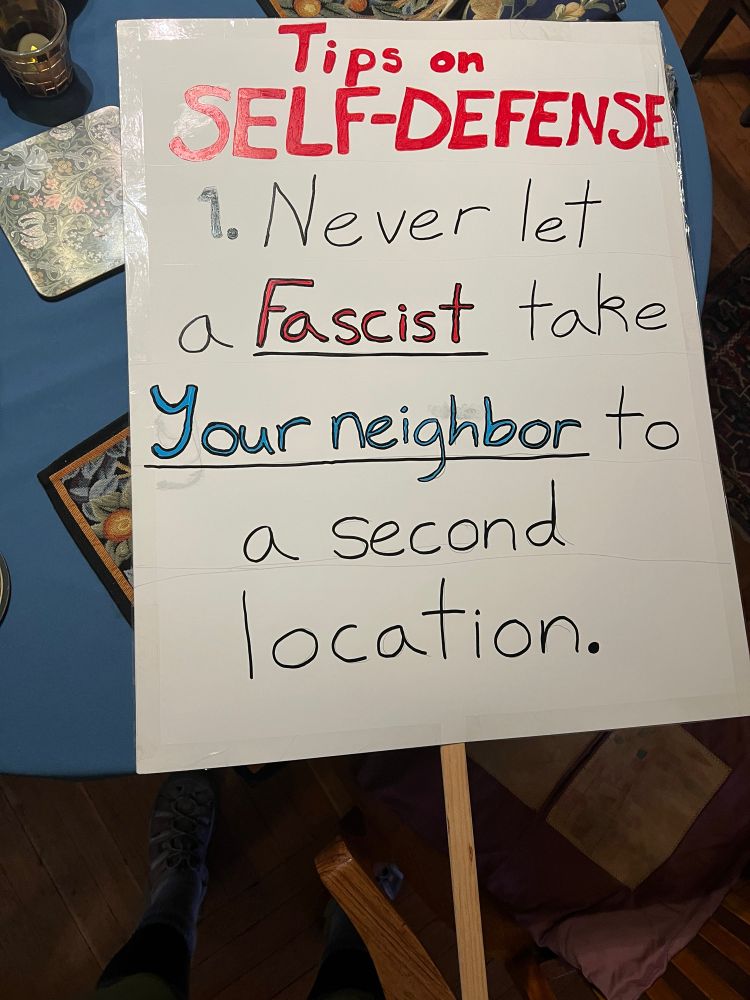 Tips on
SELF-DEFENSE
1. Never let
a Fascist take
Your neighbor to
a second
location.